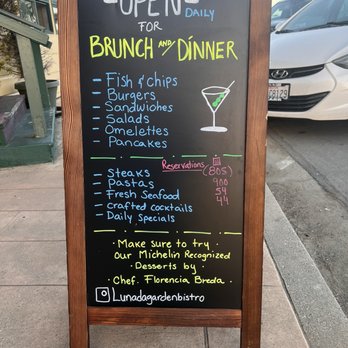 OPEN
DAILY
FOR
BRUNCH AND DINNER
- Fish & chips
- Burgers
- Sandwiches
- Salads
- Omelettes
- Pancakes
- Steaks
- Pastas
- Fresh Seafood
- Crafted cocktails
- Daily specials
Reservations
(805)
900
54
44
· Make sure to try ·
our Michelin Recognized
Desserts by
· Chef. Florencia Breda ·
Lunadagardenbistro